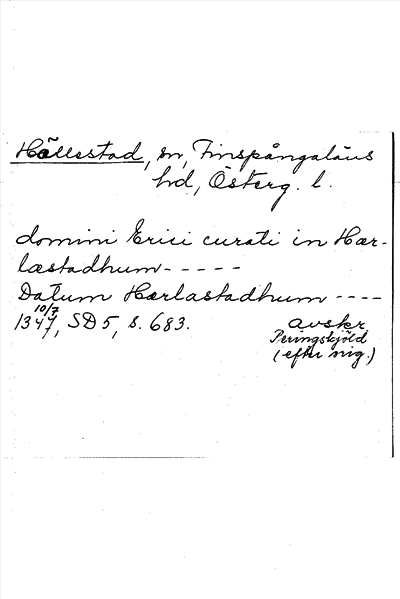 Hällestad, sn, Finspångaläns
hd, Österg. l.
domini Erici curati in Hær-
læstadhum- - - - -
Datum Hærlastadhum - - - -
10/7
1347, SD 5, s. 683.
avskr
Peringskjöld
(efter orig.)